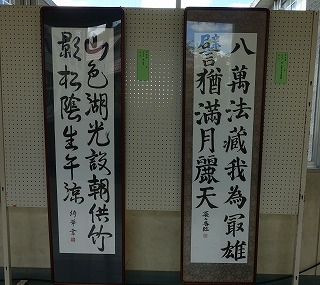 八萬法藏我為冣雄
譬猶滿月麗天
山色湖光設朝供竹
影松陰生午涼